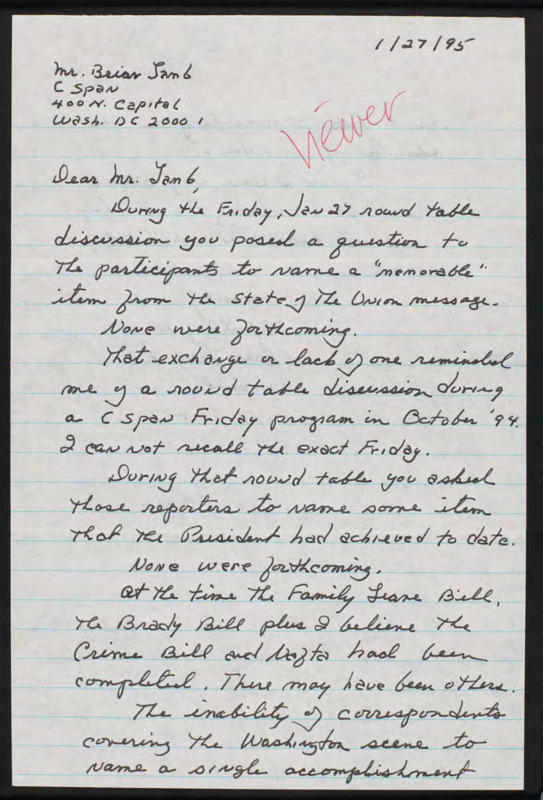 1/27/95
Mr. Brian Lamb
C Span
400 N. Capital
Wash. DC 20001
viewer
Dear Mr. Lamb,
During the Friday, Jan 27 round table
discussion you posed a question to
the participants to name a "memorable"
item from the State of The Union message.
None were forthcoming.
That exchange or lack of one reminded
me of a round table discussion during
a C Span Friday program in October '94.
I can not recall the exact Friday.
During that round table you asked
those reporters to name some item
that the President had achieved to date.
None were forthcoming.
At the time the Family Leave Bill,
the Brady Bill plus I believe the
Crime Bill and Nafta had been
completed. There may have been others.
The inability of correspondents
covering the Washington scene to
name a single accomplishment